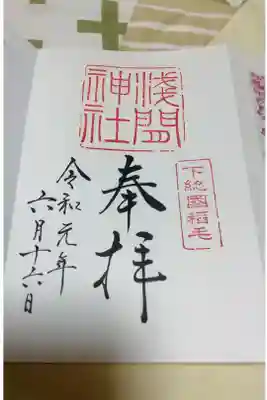 下総國稲毛
淺間
神社
奉拝
令和元年
六月十六日